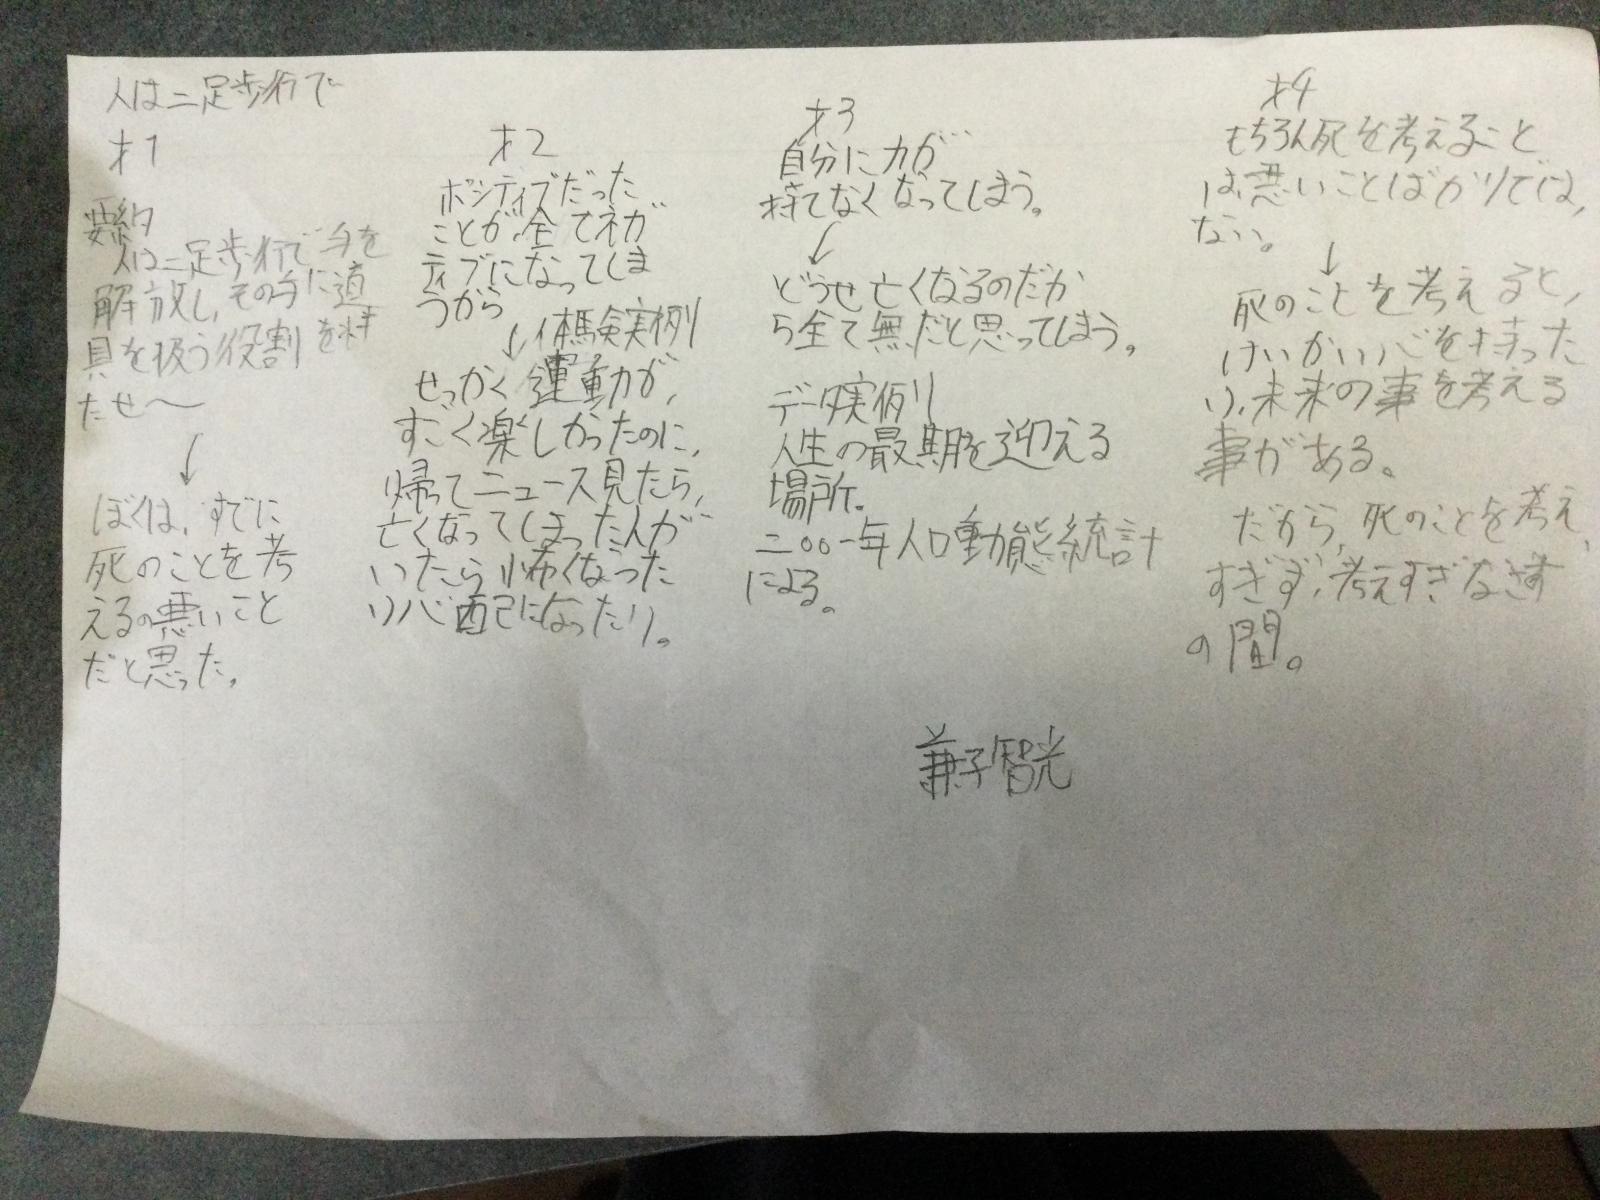 人は二足歩行で
才1
要約
人は二足歩行で手を
解放し、その手に道
具を扱う役割を持
たせ〜
↓
ぼくは、すでに
死のことを考
えるの悪いこと
だと思った。
才2
ポジティブだった
ことが、全てネガ
ティブになってしま
うから
↓体験実例
せっかく運動が、
すごく楽しかったのに、
帰ってニュース見たら、
亡くなってしまった人が
いたら怖くなった
り心配になったり。
才3
自分に力が
持てなくなってしまう。
↓
どうせ亡くなるのだか
ら全て無だと思ってしまう。
データ実例
人生の最期を迎える
場所。
二〇〇一年人口動態統計
による。
才4
もちろん死を考えること
は、悪いことばかりでは、
ない。
↓
死のことを考えると、
けいかい心を持った
り、未来の事を考える
事がある。
だから、死のことを考え
すぎず、考えすぎなさす
の間。
兼子智光